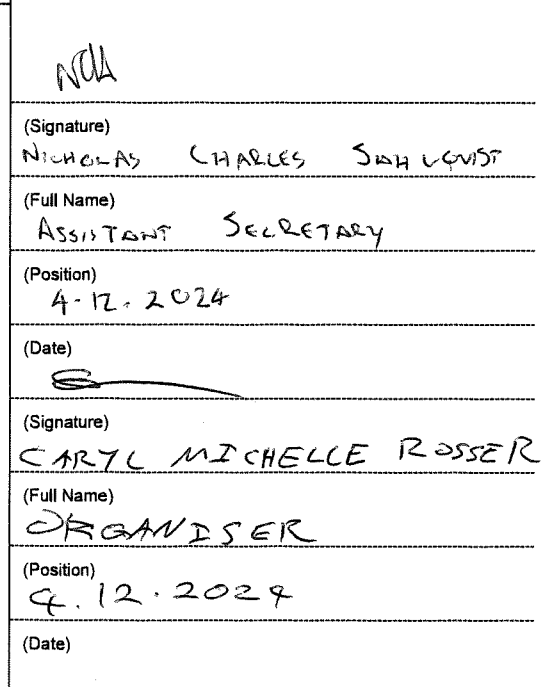 (Signature)
NICHOLAS CHARLES
(Full Name)
ASSISTANT SECRETARY
(Position)
4.12.2024
(Date)
(Signature)
CARYL MICHELLE ROSSER
(Full Name)
ORGANISER
(Position)
4.12.2024
(Date)